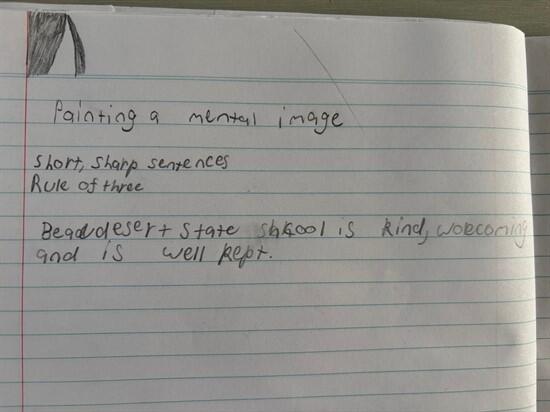 Painting a mental image
short, sharp sentences
Rule of three
Beaudesert State shkool is kind, woecoming
and is well kept.